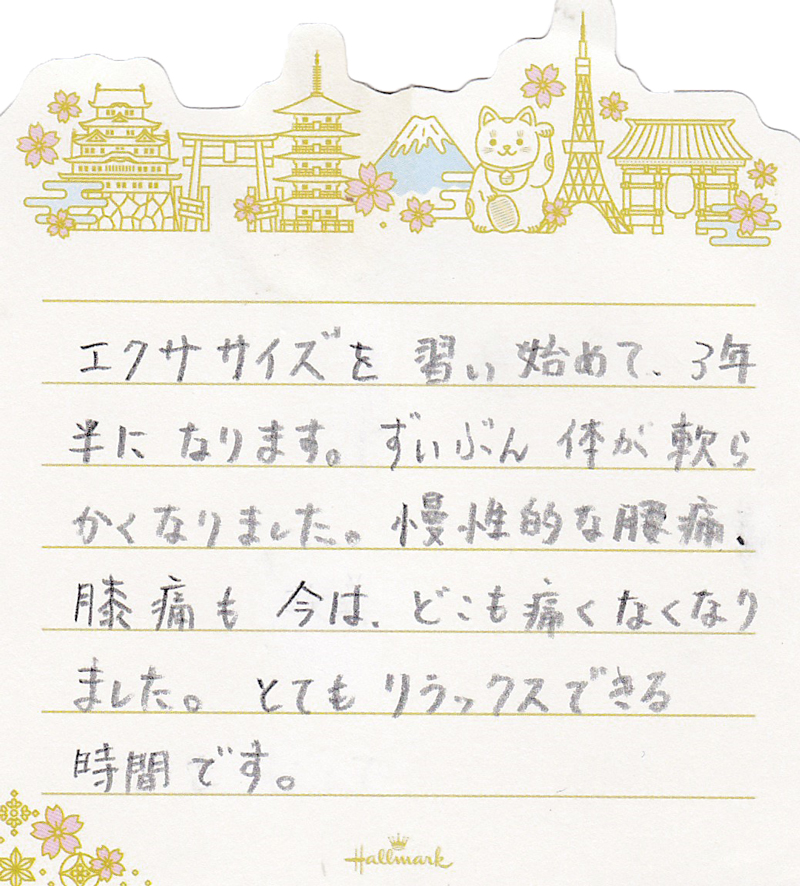 エクササイズを 習い 始めて、3年
半に なります。ずいぶん 体が 軟ら
かくなりました。慢性的な腰痛、
膝痛も 今は、どこも痛くなくなり
ました。とても リラックスできる
時間です。
Hallmark